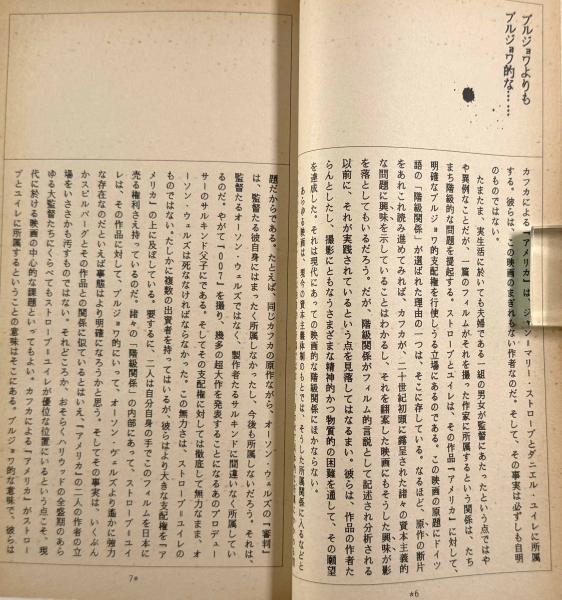 ブルジョワよりも
ブルジョワ的な……
カフカによる『アメリカ』は、ジャン＝マリー・ストローブとダニエル・ユイレに所属
する。彼らは、この映画のまぎれもない作者なのだ。そして、その事実は必ずしも自明
のものではない。
たまたま、実生活に於いても夫婦である一組の男女が監督にあたったという点ではや
や異例なことだが、一篇のフィルムがそれを撮った作家に所属するという関係は、たち
まち階級的な問題を提起する。ストローブとユイレは、その作品『アメリカ』に対して、
明確なブルジョワ的支配権を行使しうる立場にあるのである。この映画の原題にドイツ
語の「階級関係」が選ばれた理由の一つは、そこに存している。なるほど、原作の断片
をあれこれ読み進めてみれば、カフカが、二十世紀初頭に露呈された諸々の資本主義的
な問題に興味を示していることはわかるし、それを翻案した映画にもそうした興味が影
を落としてもいるだろう。だが、階級関係がフィルム的言説として記述され分析される
以前に、それが実践されているという点を見落してはなるまい。彼らは、作品の作者た
らんとしたし、撮影にともなうさまざまな精神的かつ物質的の困難を通して、その願望
を達成した。それは現代にあっての映画的な階級関係にほかならない。
あらゆる映画は、現今の資本主義体制のもとでは、そうした所属関係に入るなどと
題だからである。たとえば、同じカフカの原作ながら、オーソン・ウェルズの『審判』
は、監督たる彼自身にはまったく所属しなかったし、今後も所属しないだろう。それは、
監督たるオーソン・ウェルズではなく、製作者たるサルキンドに間違いなく所属してい
るのだ。やがて『００７』を撮り、幾多の超大作を発表することになるあのプロデュー
サーのサルキンド父子にである。そしてその支配権に対しては徹底して無力なまま、オ
ーソン・ウェルズは死ななければならなかった。この無力さは、ストローブ＝ユイレの
ものではない。たしかに複数の出資者を持ってはいるが、彼らはより大きな支配権を『ア
メリカ』の上に及ぼしている。要するに、二人は自分自身の手でこのフィルムを日本に
売る権利さえ持っているのだ。諸々の「階級関係」の内部にあって、ストローブ＝ユイ
レは、その作品に対して、ブルジョワ的にいって、オーソン・ウェルズより遥かに強力
な存在なのだといえば事態はより明確になろうかと思う。そしてその事実は、いくぶん
かスピルバーグとその作品との関係に似ているとはいえ、『アメリカ』の二人の作者の立
場をいささかも汚すものではない。それどころか、おそらくハリウッドの全盛期のあら
ゆる大監督たちにくらべてもストローブ＝ユイレが優位な位置にいるという点こそ、現
代に於ける映画の中心的な課題といってもよい。カフカによる『アメリカ』がストロー
ブとユイレに所属するということの意味はそこにある。ブルジョワ的な意味で、彼らは
7*
*6